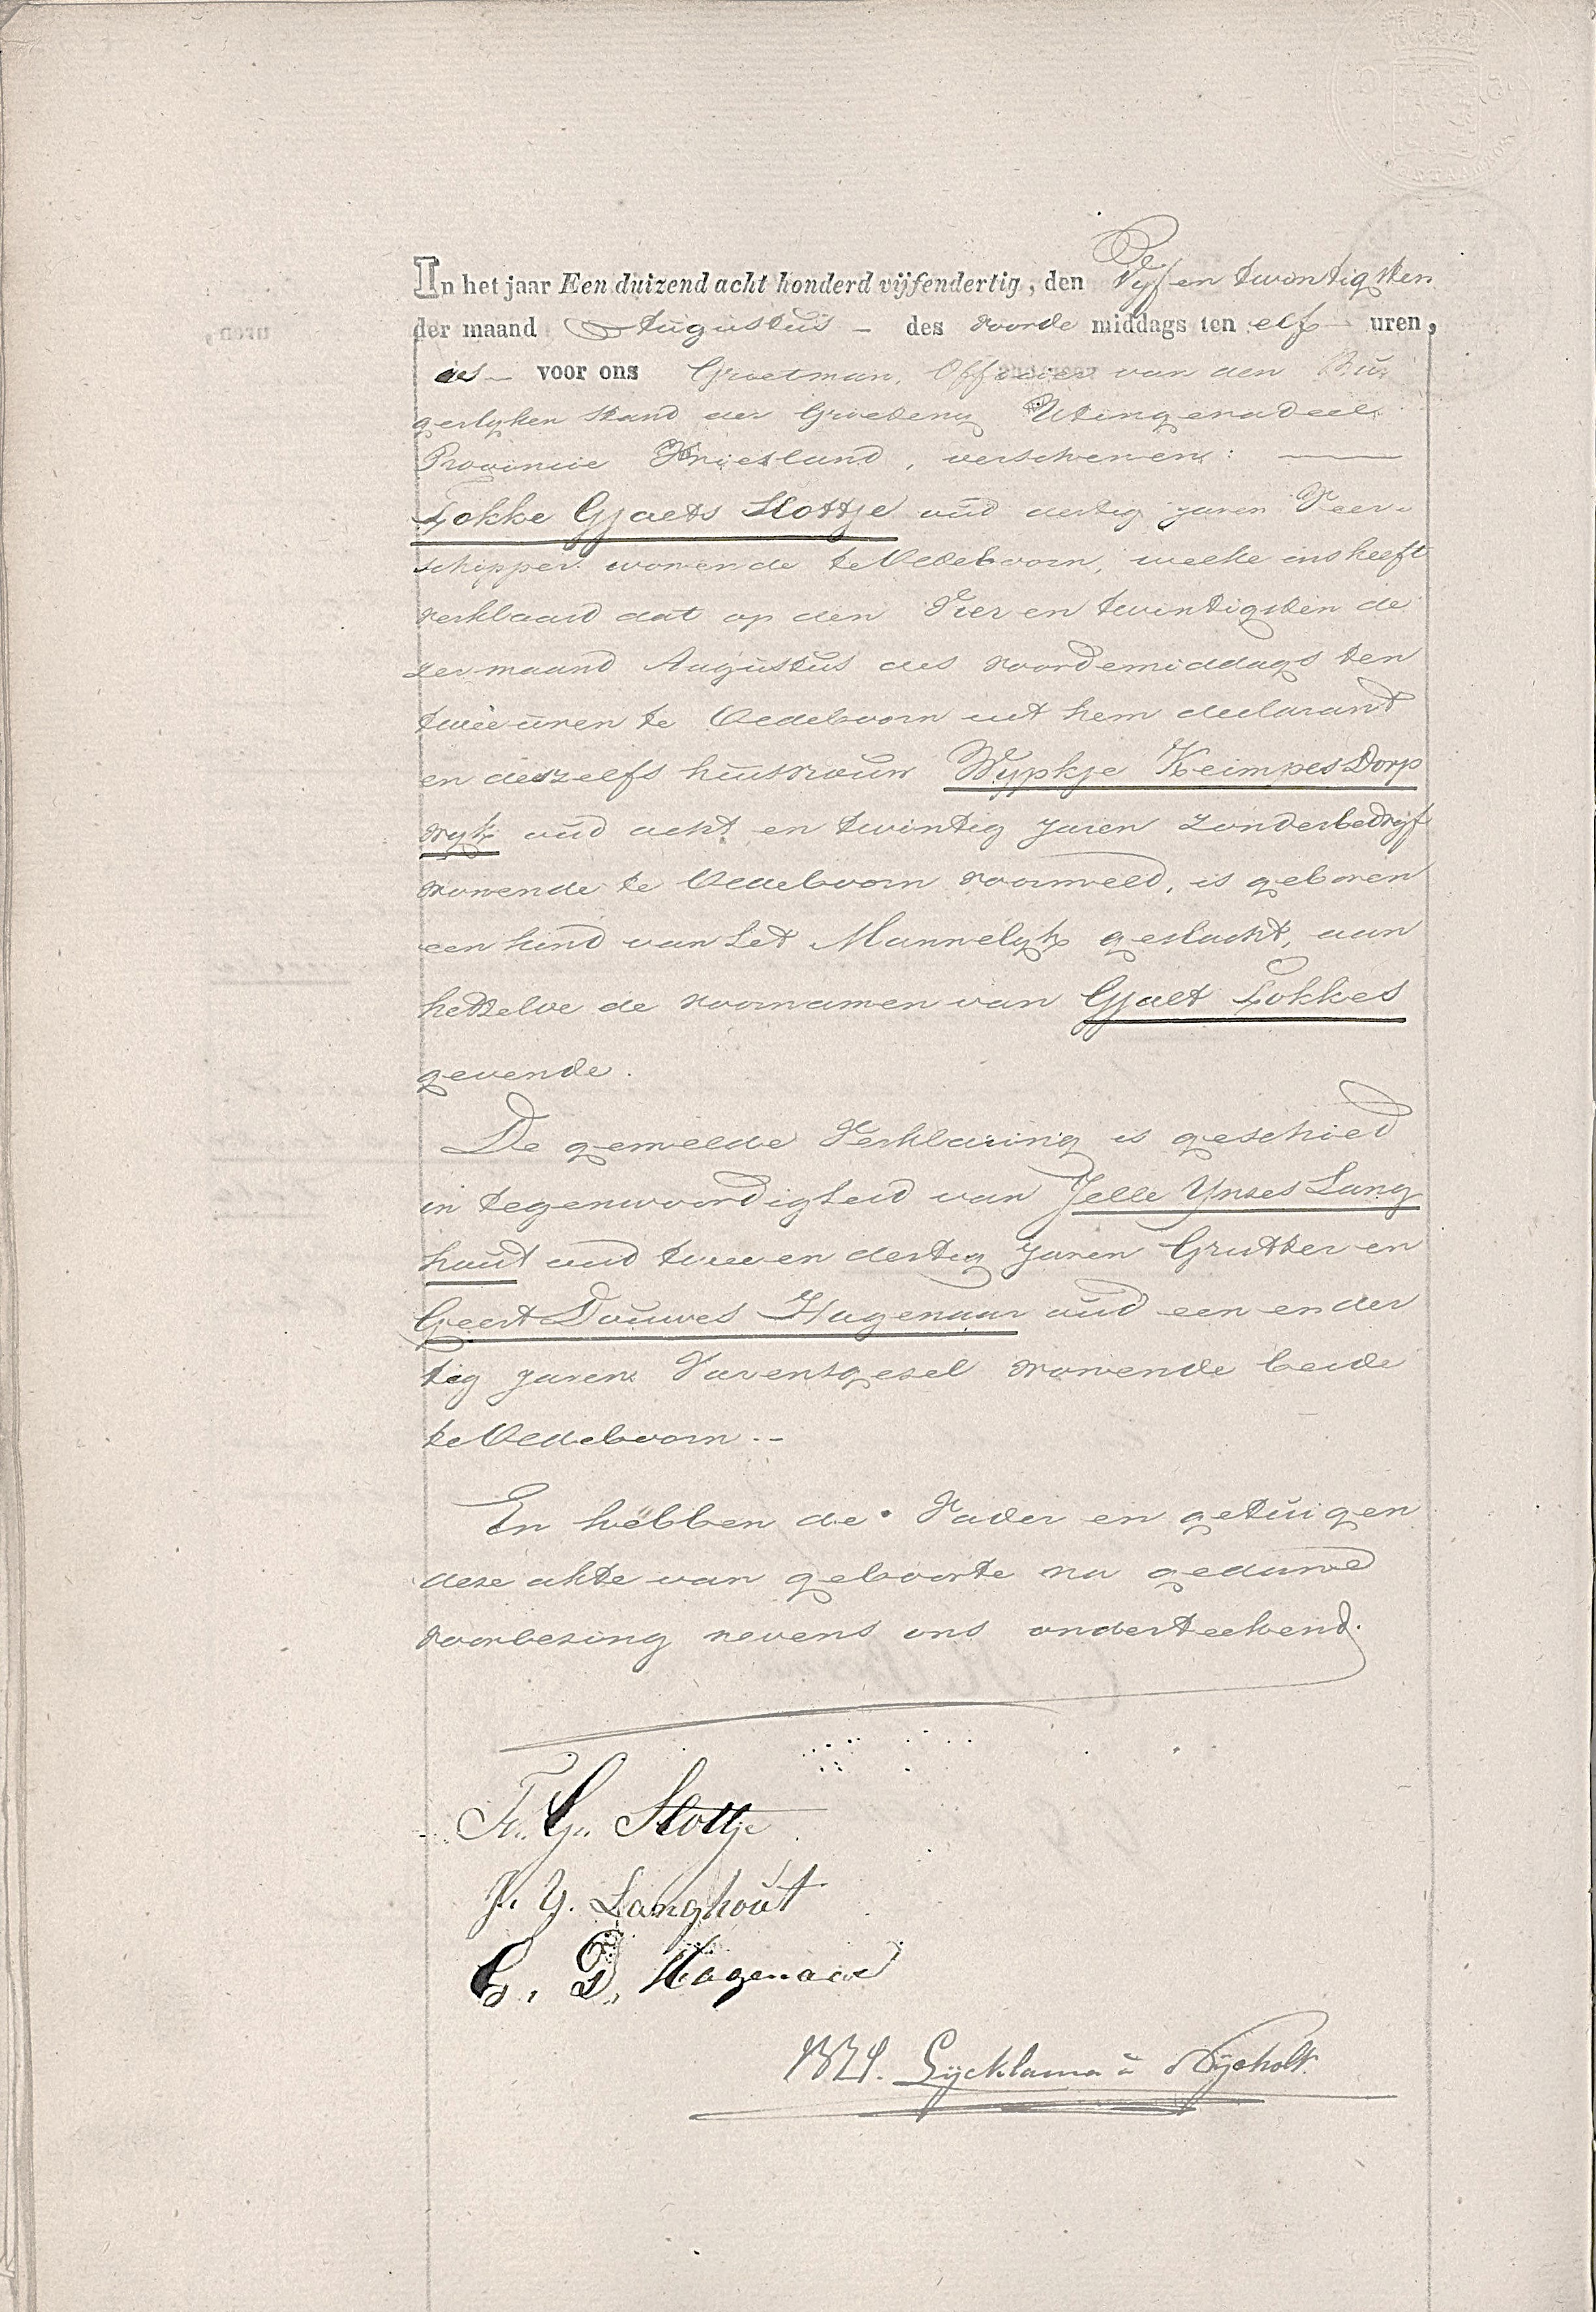 In het jaar Een duizend acht honderd vijfendertig, den Vyf en twintigsten
der maand Augustus - des voorde middags ten elf uren,
is voor ons Grietman, Officier van den Bur
gerlyken stand der Grieteny Utingeradeel
Provincie Friesland, verschenen:
Fokke Gjaets Slottje oud dertig jaren Veer
schipper wonende te Oldeboorn, welke ons heeft
verklaard dat op den Vier en twintigsten de
zer maand Augustus des voordemiddags ten
twee uren te Oldeboorn uit hem declarant
en deszelfs huisvrouw Wypkje Keimpes Dorp
wyk oud acht en twintig jaren zonder bedryf
wonende te Oldeboorn voormeld, is geboren
een kind van het Mannelyk geslacht, aan
hetzelve de voornamen van Gjalt Fokkes
gevende.
De gemelde Verklaring is geschied
in tegenwoordigheid van Jelle Ynses Lang
hout oud twee en dertig jaren Grutter en
Geert Douwes Hagenaar oud een en der
tig jaren Varensgesel wonende beide
te Oldeboorn.-
En hebben de Vader en getuigen
deze akte van geboorte na gedane
voorlezing nevens ons onderteekend.
F. G. Slottje
J. Y. Langhout
G. D. Hagenaar
Lycklama à Nyeholt